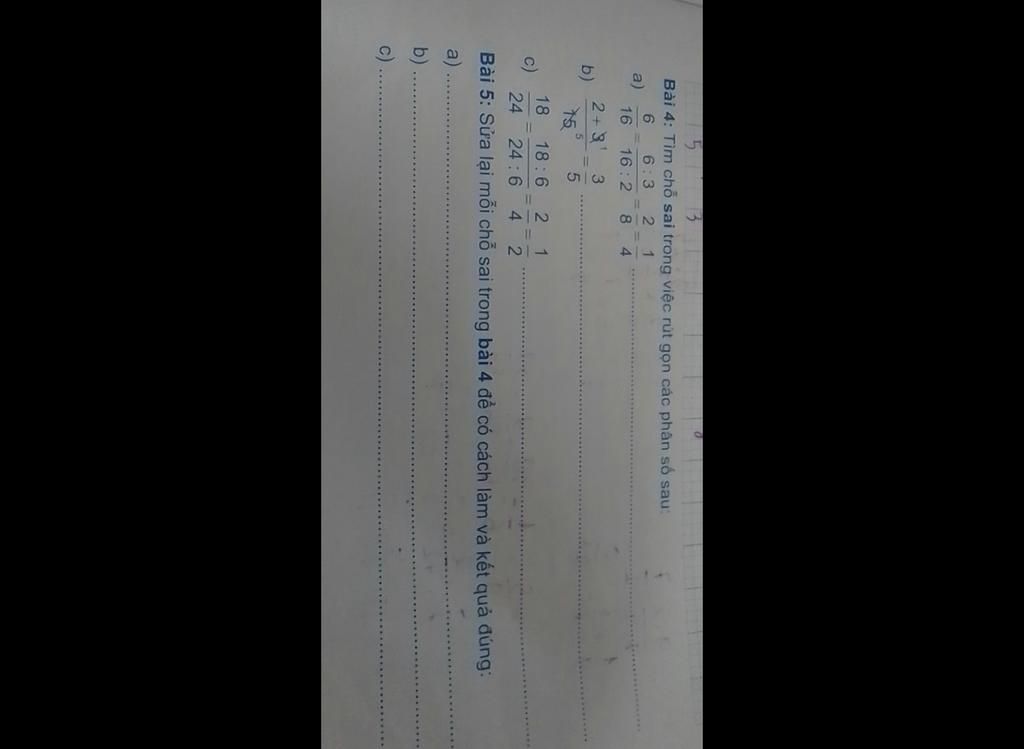 5 3
Bài 4: Tìm chỗ sai trong việc rút gọn các phân số sau:
a) 6/16 = 6 : 3/16 : 2 = 2/8 = 1/4 ........
b) 2 + 3 1/15 5 = 3/5 ........
c) 18/24 = 18 : 6/24 : 6 = 2/4 = 1/2 ........
Bài 5: Sửa lại mỗi chỗ sai trong bài 4 để có cách làm và kết quả đúng:
a) ........
b) ........
c) ........